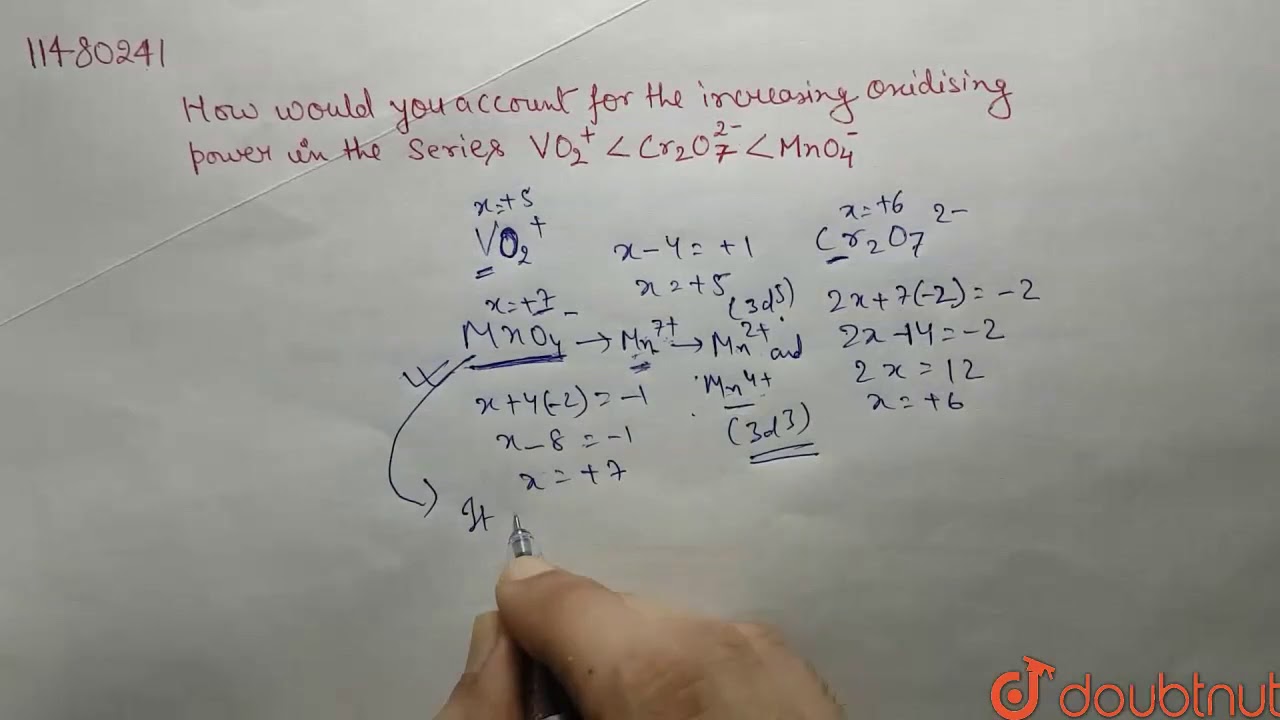 11480241
How would you account for the increasing oxidising
power in the series VO₂⁺ < Cr₂O₇²⁻ < MnO₄⁻
x=+5
VO₂⁺
x-4=+1
x=+5
x=+6
Cr₂O₇²⁻
2x+7(-2)=-2
2x-14=-2
2x=12
x=+6
x=+7
MnO₄⁻ → Mn⁷⁺ → Mn²⁺ and
(3d⁵)
Mn⁴⁺
(3d³)
x+4(-2)=-1
x-8=-1
x=+7
It
doubtnut